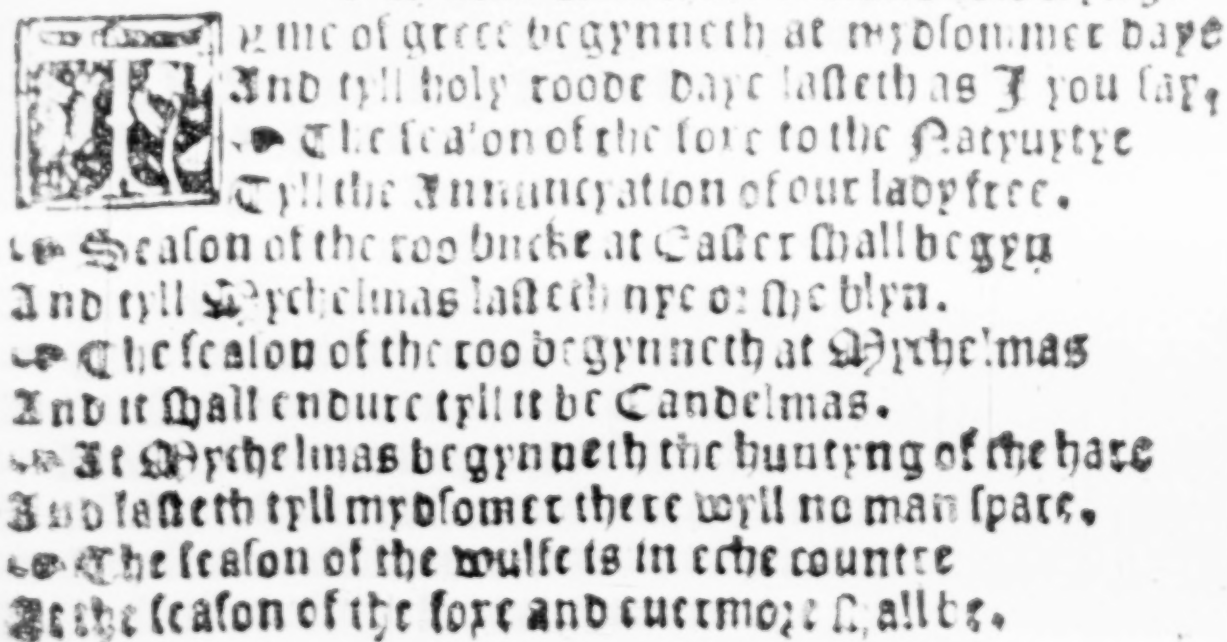 Tyme of grece begynneth at mydsommer daye
And tyll holy roode daye lasteth as I you say,
The season of the foxe to the Natyuytye
Tyll the Annuncyation of our lady free.
Season of the roo bucke at Easter shall begyn
And tyll Mychelmas lasteth nye or she blyn.
The season of the roo begynneth at Mychelmas
And it shall endure tyll it be Candelmas.
At Mychelmas begynneth the huntyng of the hare
And lasteth tyll mydsomer there wyll no man spare.
The season of the wulfe is in eche countre
At the season of the foxe and euermore shall be.